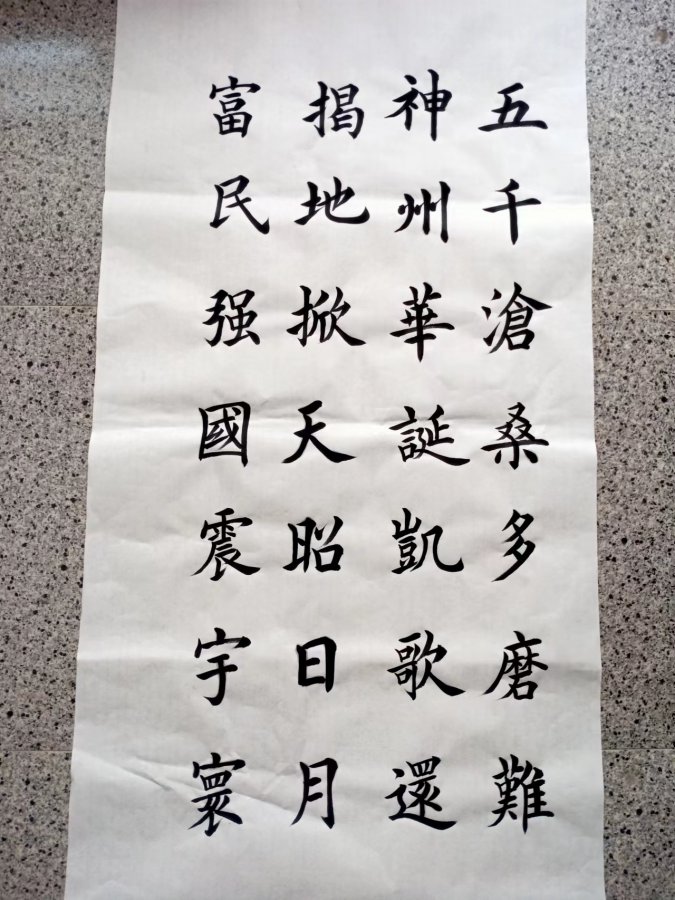 五千滄桑多磨難
神州華誕凱歌還
揭地掀天昭日月
富民强國震宇寰